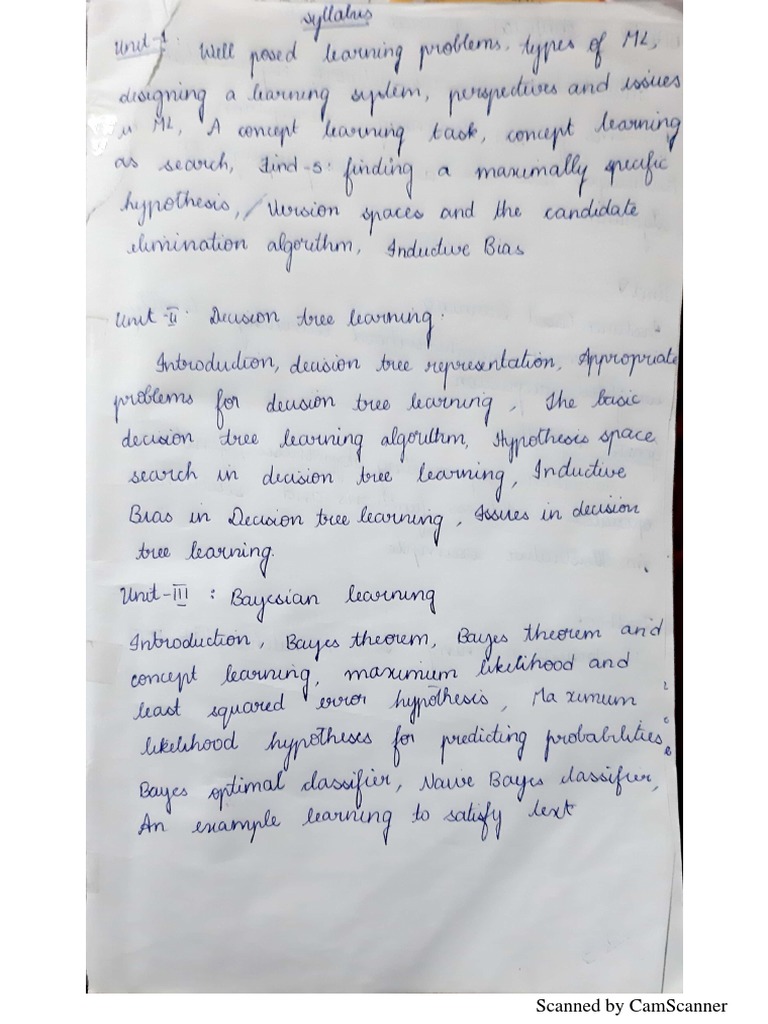 Syllabus
Unit-1: Well posed learning problems, types of ML,
designing a learning system, perspectives and issues
in ML, A concept learning task, concept learning
as search, Find-s: finding a maximally specific
hypothesis, Version spaces and the candidate
elimination algorithm, Inductive Bias
Unit-II: Decision tree learning.
Introduction, decision tree representation, Appropriate
problems for decision tree learning, The basic
decision tree learning algorithm, Hypothesis space
search in decision tree learning, Inductive
Bias in Decision tree learning, Issues in decision
tree learning.
Unit-III: Bayesian learning
Introduction, Bayes theorem, Bayes theorem and
concept learning, maximum likelihood and
least squared error hypothesis, Maximum
likelihood hypotheses for predicting probabilities,
Bayes optimal classifier, Naive Bayes classifier,
An example learning to satisfy text
Scanned by CamScanner